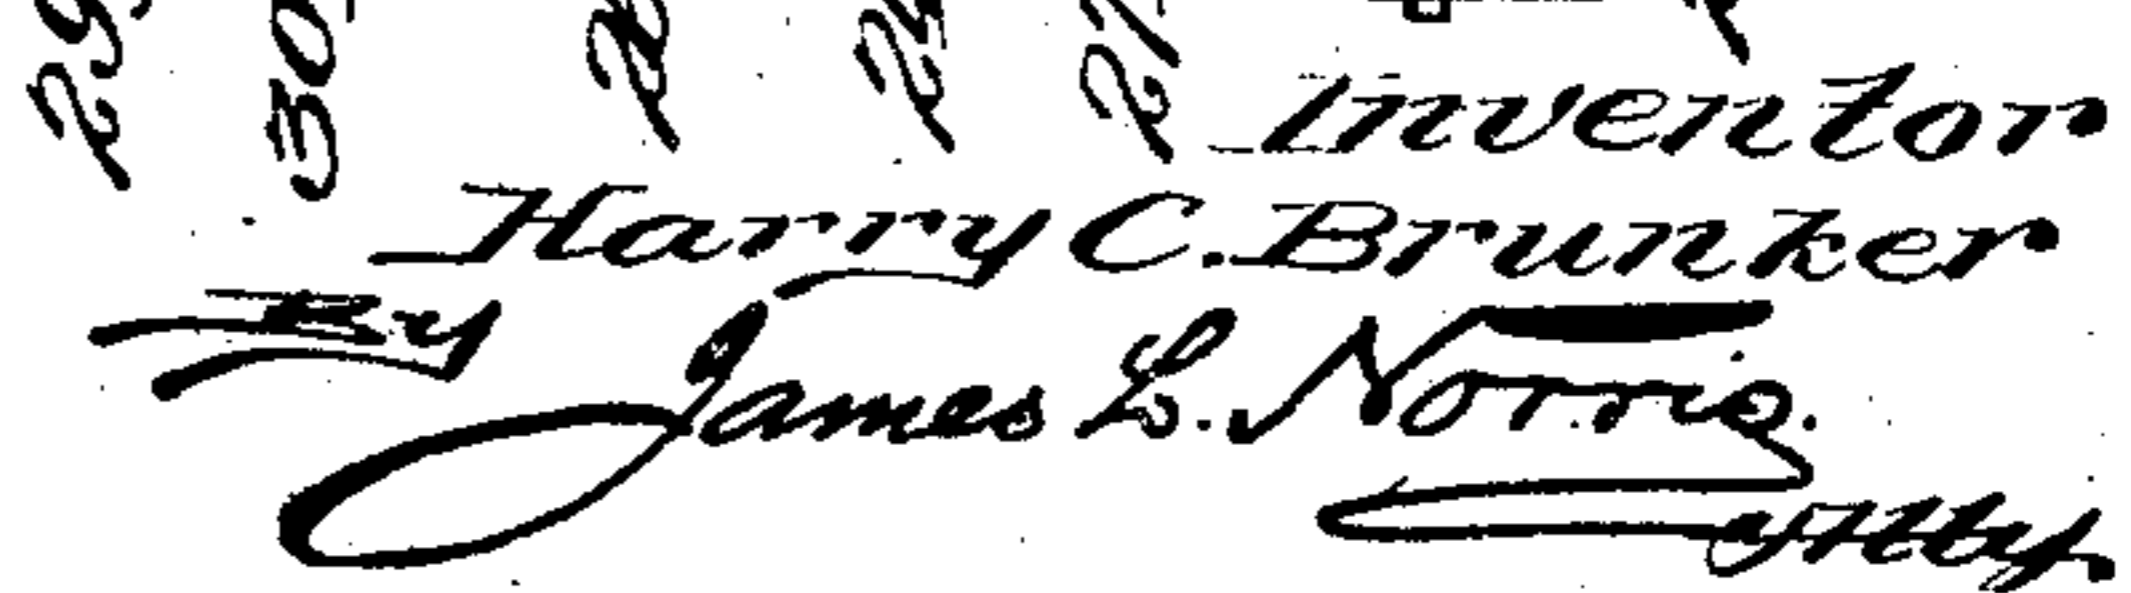 29
30
Inventor
Harry C. Brunker
By
James L. Norris.
Atty.